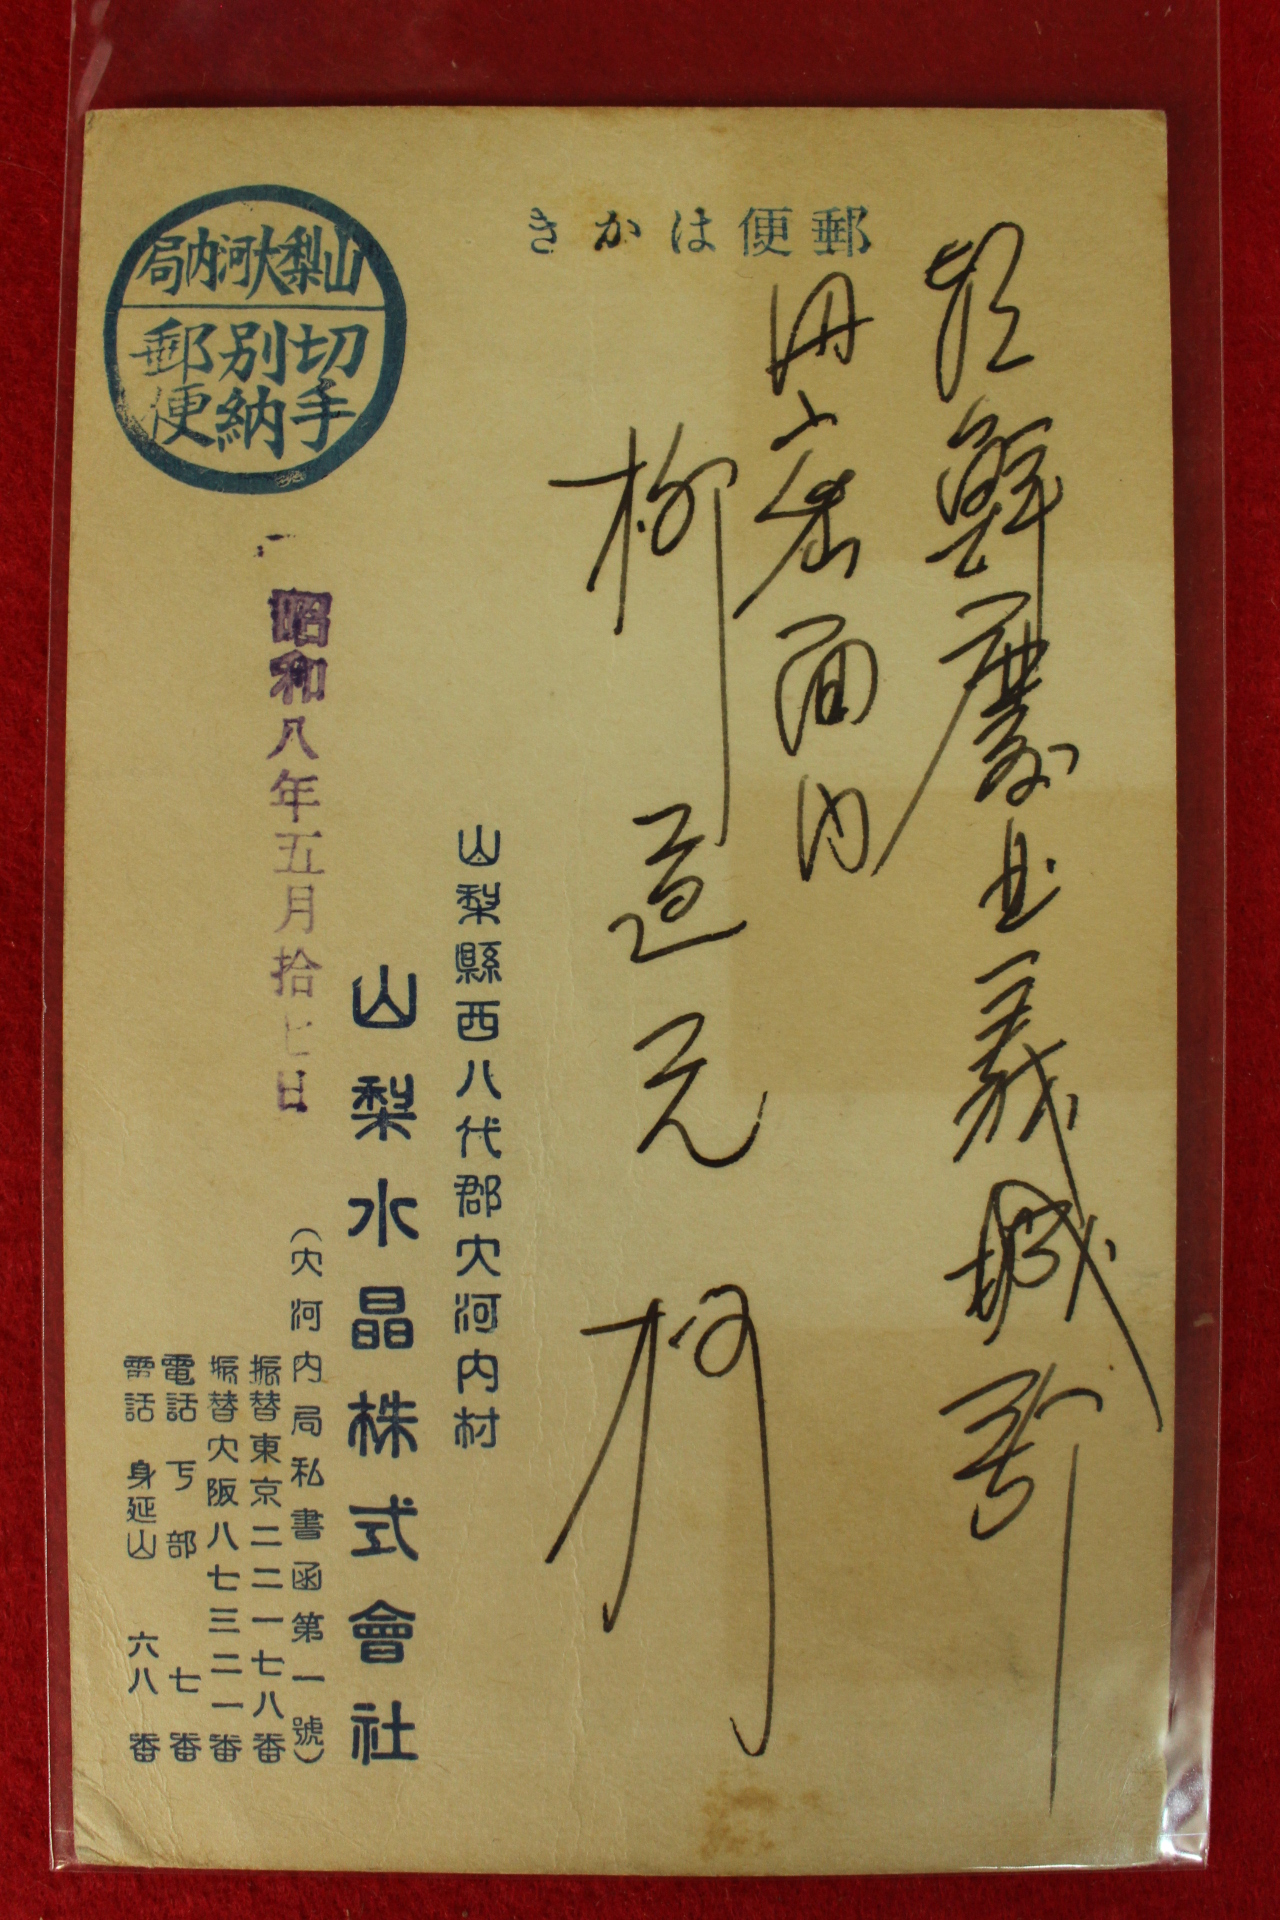 郵便はかき
朝鮮慶北義城郡
丹密面内
柳道元
山梨大河内局
切手
別納
郵便
昭和八年五月拾七日
山梨縣西八代郡大河内村
山梨水晶株式會社
(大河内局私書函第一號)
振替東京二二一七八番
振替大阪八七三二一番
電話下部七番
電話身延山六八番